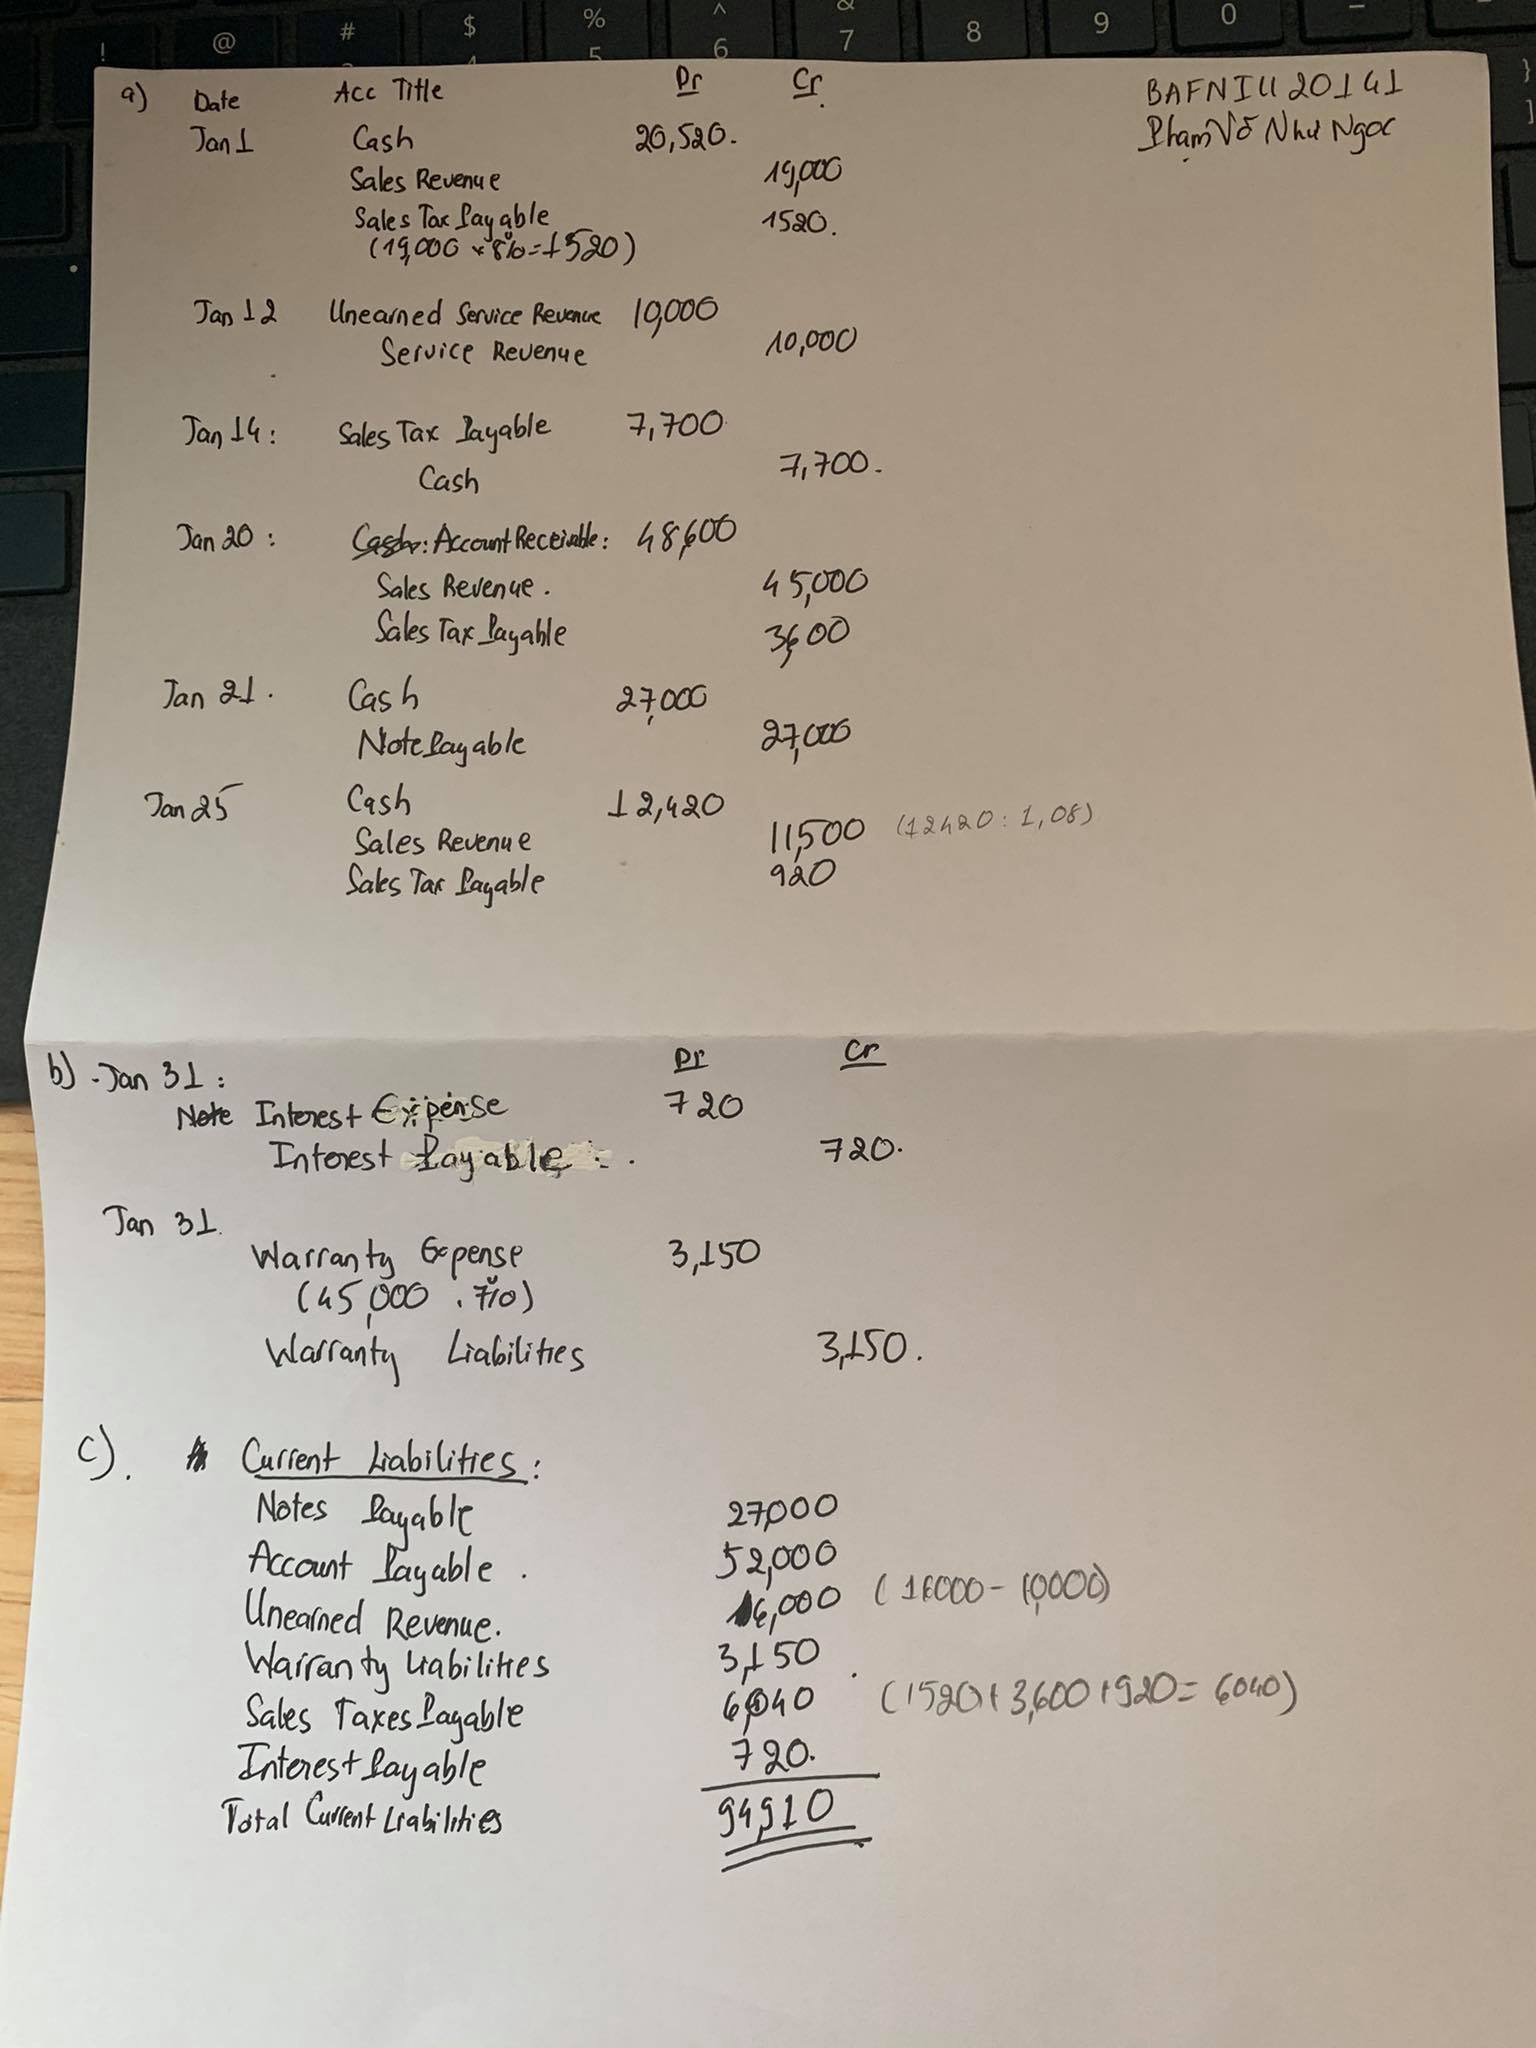 ! @ # $ % ^ & 8 9 0 –
5 6 7
a) Date Acc Title Dr Cr.
BAFNIU20141
Phạm Võ Như Ngọc
Jan 1 Cash 20,520.
Sales Revenue 19,000
Sales Tax Payable 1520.
(19,000 × 8% = 1520)
Jan 12 Unearned Service Revenue 10,000
Service Revenue 10,000
Jan 14: Sales Tax Payable 7,700
Cash 7,700.
Jan 20: Cash: Account Receivable: 48,600
Sales Revenue. 45,000
Sales Tax Payable 3,600
Jan 21. Cash 27,000
Note Payable 27,000
Jan 25 Cash 12,420
Sales Revenue 11,500 (12420: 1,08)
Sales Tax Payable 920
b) - Jan 31: Dr Cr
Note Interest Expense 720
Interest Payable . 720.
Jan 31.
Warranty Expense 3,150
(45,000 . 7%)
Warranty Liabilities 3,150.
c). Current Liabilities:
Notes Payable 27,000
Account Payable. 52,000
Unearned Revenue. 6,000 (16000 - 10,000)
Warranty Liabilities 3,150.
Sales Taxes Payable 6,040 (1520 + 3,600 + 920 = 6040)
Interest Payable 720.
Total Current Liabilities 94,910